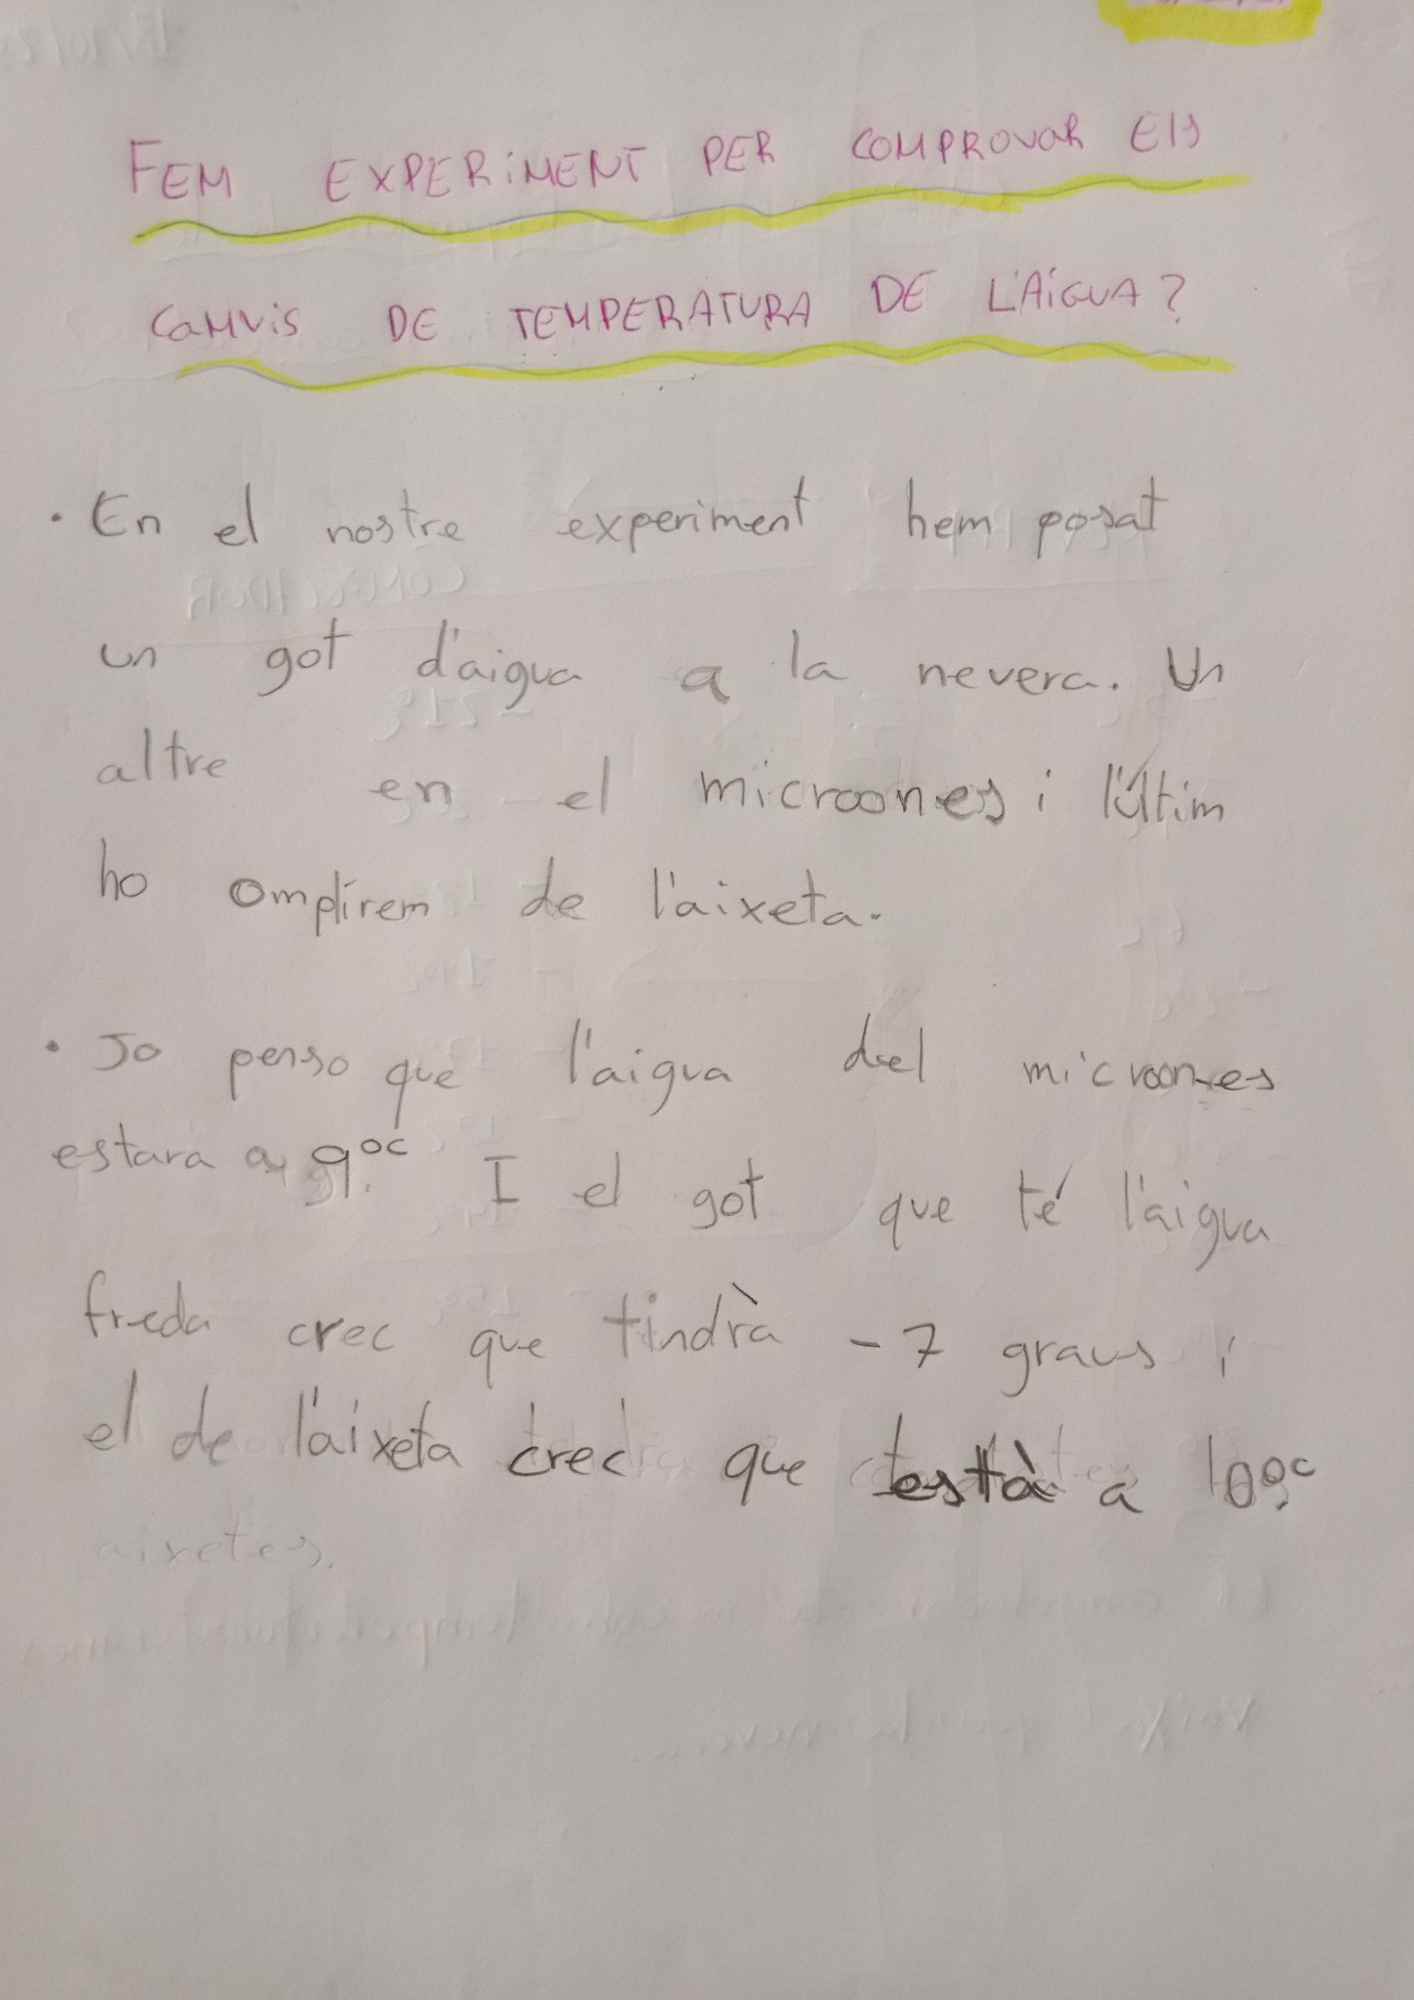 FEM EXPERIMENT PER COMPROVAR Els
CAMVIS DE TEMPERATURA DE L'AIGUA?
· En el nostre experiment hem posat
un got d'aigua a la nevera. Un
altre en el microones i l'últim
ho omplirem de l'aixeta.
· Jo penso que l'aigua del microones
estara a 9ºc. I el got que té l'aigua
freda crec que tindrà -7 graus i
el de l'aixeta crec que està a 10ºc
aixetes.